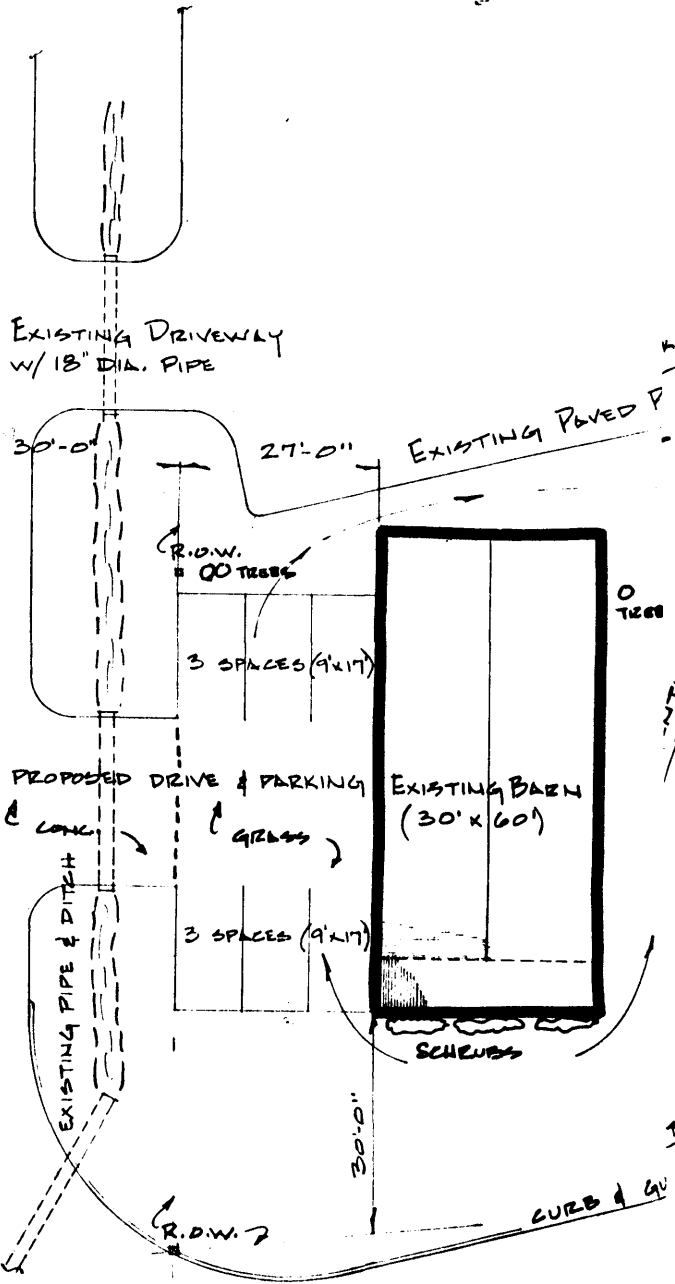 EXISTING DRIVEWAY
W/ 18" DIA. PIPE
30'-0"
27'-0"
EXISTING PAVED
R.O.W.
OO TREES
O
TREE
3 SPACES (9'x17')
PROPOSED DRIVE & PARKING
CONC.
GRASS
EXISTING BARN
(30' x 60')
EXISTING PIPE & DITCH
3 SPACES (9'x17')
SCHRUBS
30'-0"
R.O.W.
CURB &